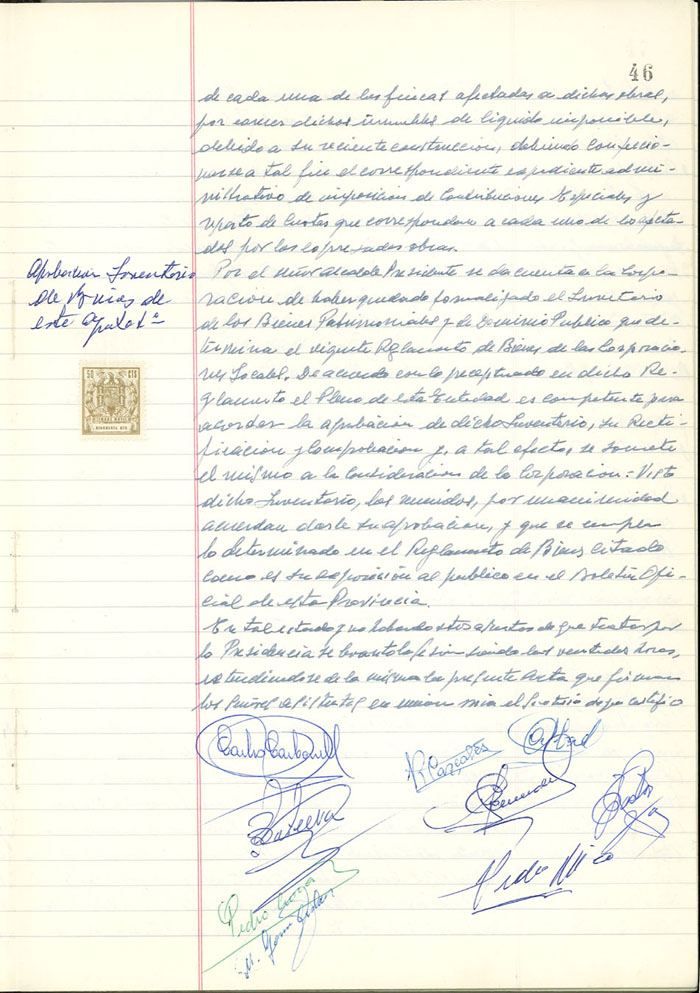 46
de cada una de las fincas afectadas a dichas obras,
por carecer dichos inmuebles de liquido imponible,
debido a su reciente construccion, debiendo confeccio-
narse a tal fin el correspondiente expediente admi-
nistrativo de imposicion de Contribuciones Especiales y
reparto de Cuotas que correspondan a cada uno de los afecta-
dos por las expresadas obras.
Aprobacion Inventario
de
este
50 CTS
Por el señor Alcalde Presidente se da cuenta a la Corpo-
racion de haber quedado formalizado el Inventario
de los Bienes Patrimoniales y de Dominio Publico que de-
termina el vigente Reglamento de Bienes de las Corporacio-
nes Locales. De acuerdo con lo preceptuado en dicho Re-
glamento el Pleno de esta Entidad es competente para
acordar la aprobacion de dicho Inventario, su Recti-
ficacion y Comprobacion y, a tal efecto, se somete
el mismo a la Consideracion de la Corporacion: Visto
dicho Inventario, los reunidos, por unanimidad
acuerdan darle su aprobacion, y que se cumpla
lo determinado en el Reglamento de Bienes citado
como es su exposición al publico en el Boletín Ofi-
cial de esta Provincia.
En tal estado y no habiendo otros asuntos de que tratar por
la Presidencia se levantó la sesión siendo las veintidos horas,
extendiendose de la misma la presente Acta que firman
los Señores asistentes en union mia el Secretario de que certifico
Carlos Carbonell
R. Pascual
Pastor
Pedro Micó
Pedro
M.